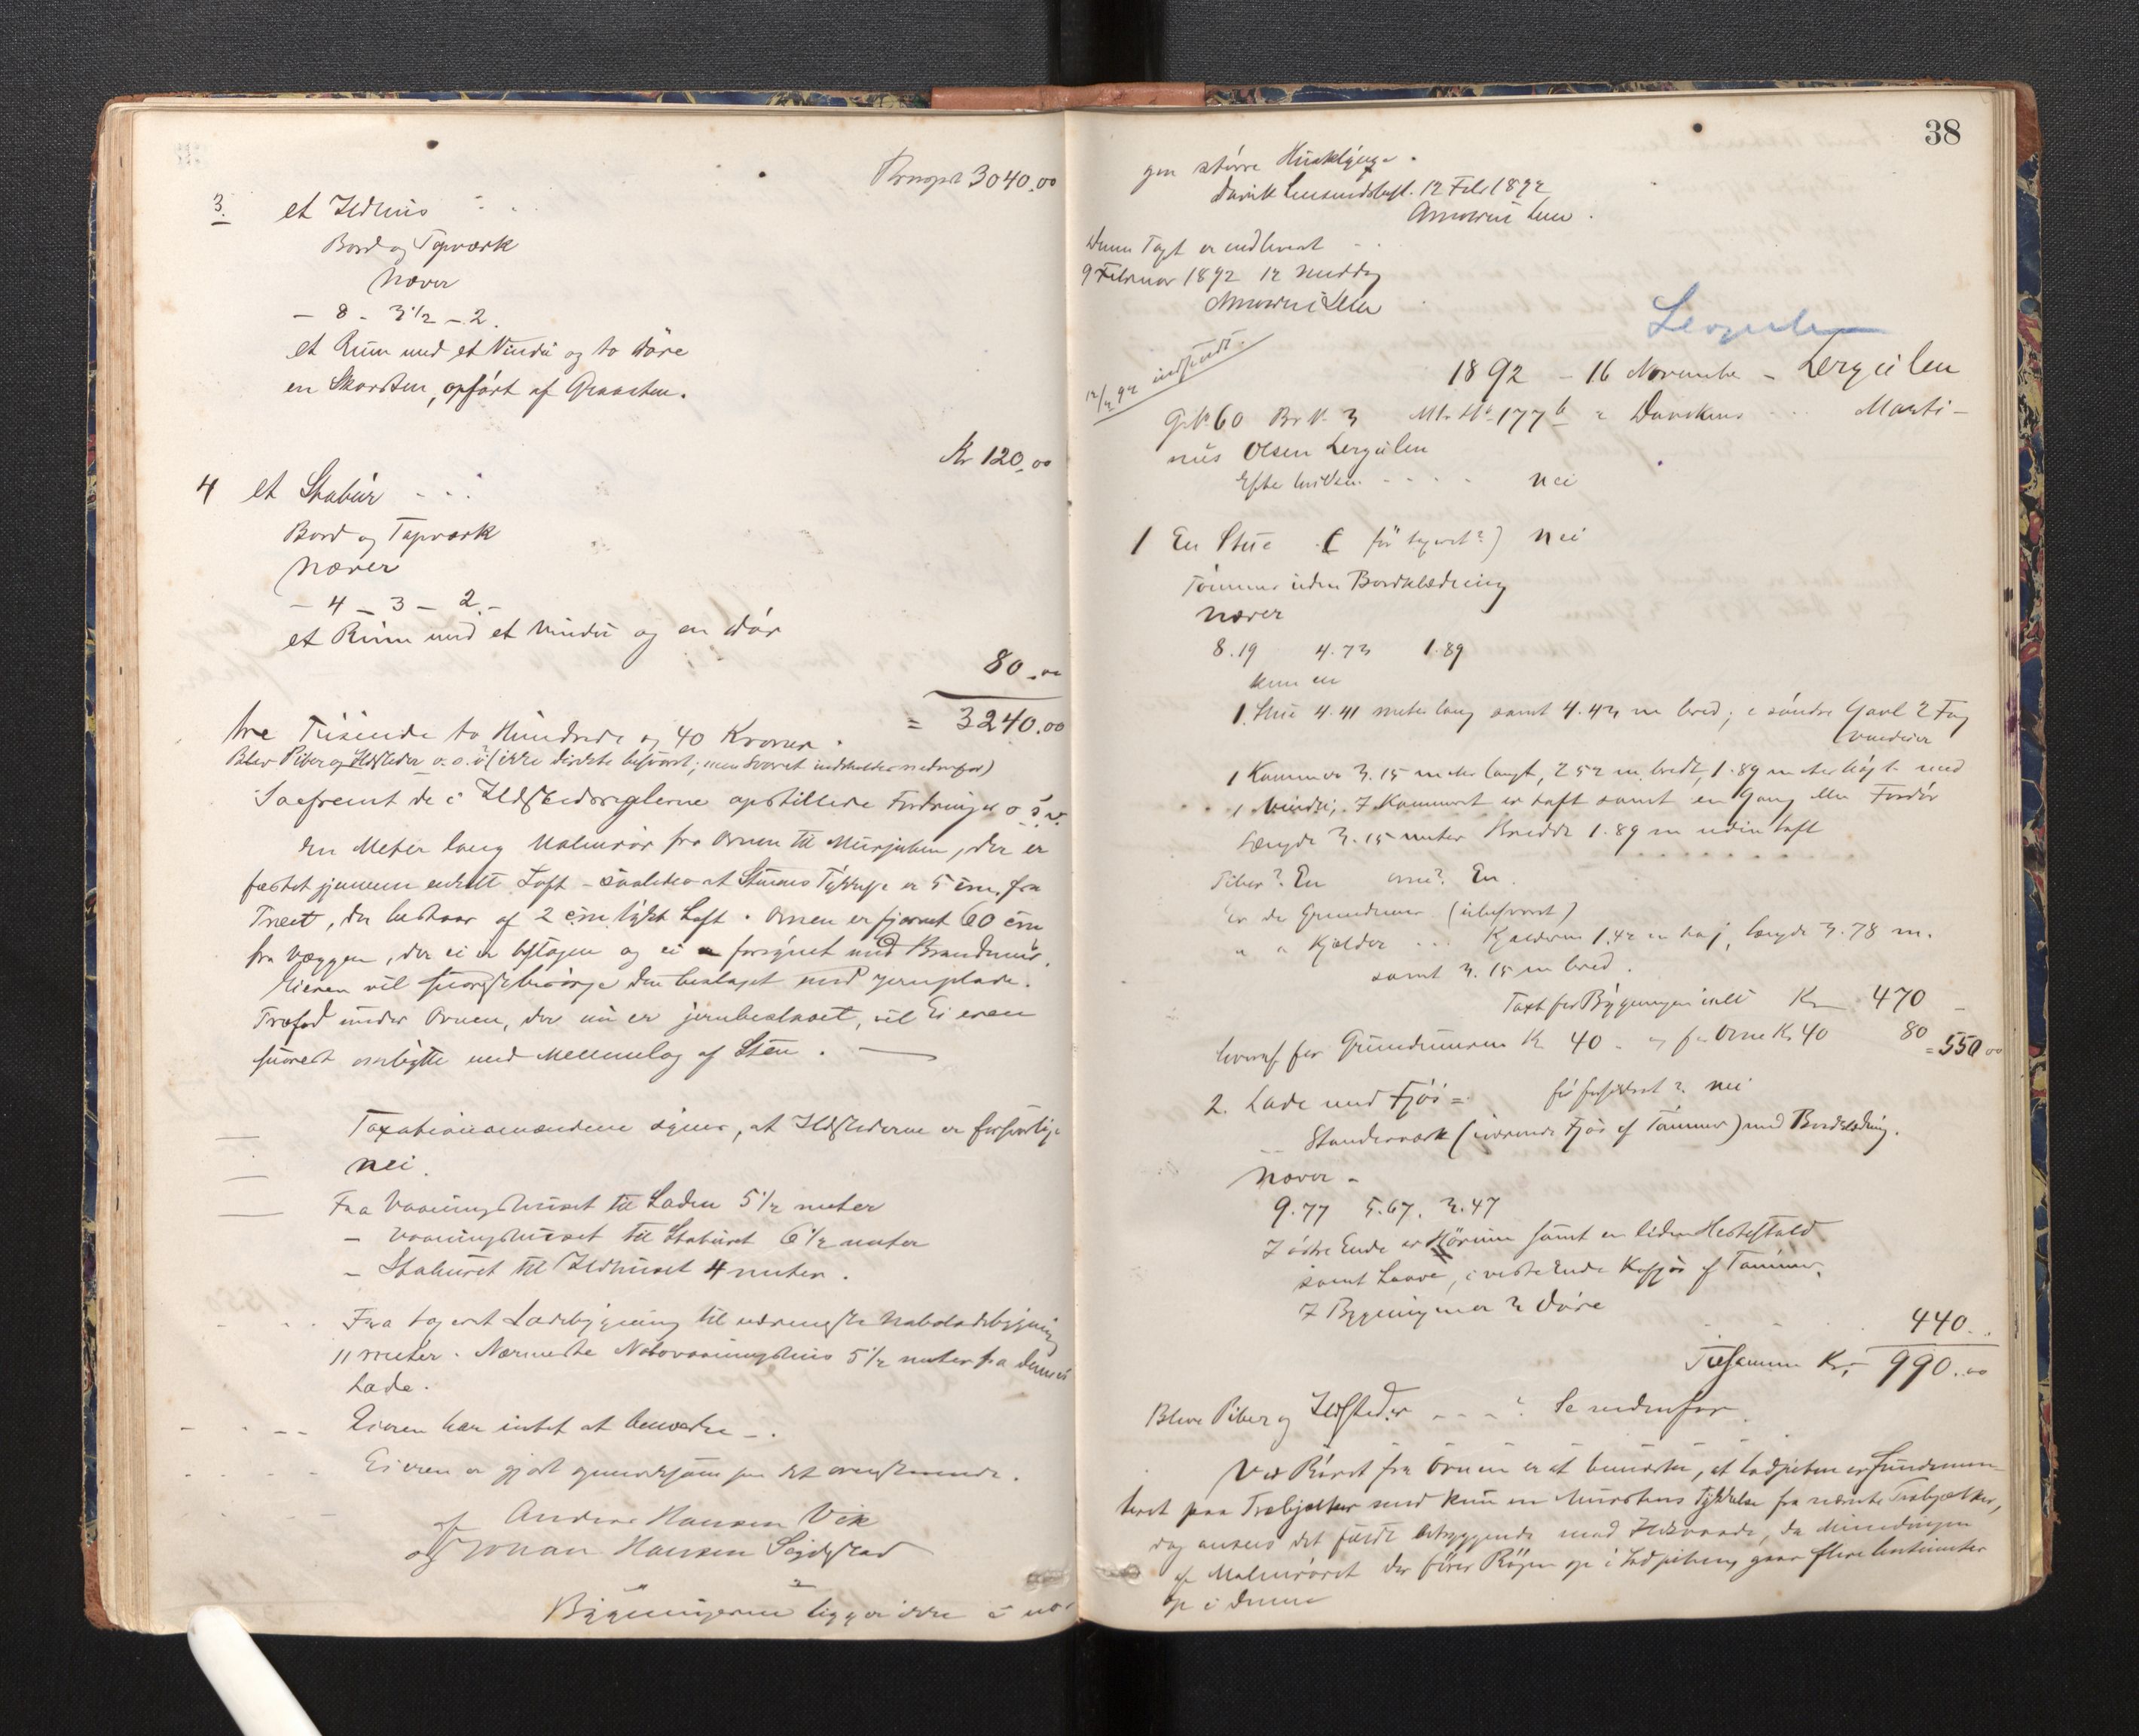 Transport 3040.00
3. et Ildhus - -
Bord og Tapværk
Næver
- 8 - 3 1/2 - 2.
et Rum med et Vindu og to Döre
en Skorsten, opfört af Graasten.
Kr 120.00
4 et Stabur - - -
Bord og Tapværk
Næver
- 4 - 3 - 2.-
et Rum med et Vindu og en Dör
80.00
= 3240.00
tre Tusinde to Hundrede og 40 Kroner.
Blev Piber og Ildsteder o.s.v? (ikke direkte besvart; men Svaret indeholdes nedenfor)
Saafremt de i Ildstedsreglerne opstillede Fordringer o.s.v.
En Meter lang Malmrör fra Ovnen til Murpiben, der er
fæstet gjennem enkelt Loft - saaledes at Stenens Tykkelse er 5 cm. fra
Træet, der bestaar af 2 cm tykt Loft. Ovnen er fjernet 60 cm
fra Væggen, der ei er beslagen og ei forsynet med Brandmur.
Eieren vil snarest besörge den beslaget med Jernplade.
Træfod under Ovnen, der nu er jernbeslaaet, vil Eieren
snarest ombytte med Mellemlag af Sten.
Taxationsmændene synes, at Ildstederne er forsvarlige
nei.
Fra Vaaningshuset til Laden 5 1/2 meter
- Vaaningshuset til Staburet 6 1/2 meter
- Staburet til Ildhuset 4 meter.
Fra taxeret Ladebygning til nærmeste Naboladebygning
11 meter. Nærmeste Nabovaaningshus 5 1/2 meter fra denne
Lade.
Eieren har intet at bemærke -.
Eieren er gjort opmerksom paa det ovenstaaende.
af Anders Hansen Vik
og Johan Hansen Seidstad
Bygningerne ligger ikke i no-
38
gen större Husklynge.
Davik Lensmandsbest. 12 Feb 1892
Denne Taxt er indleveret - -
9 Februar 1892 12 Middag
12/2 92 indsendt.
Lergulen
1892 - 16 November - Lergulen
G.No 60 Br.No. 3 Mtr.No. 177 b i Daviken - - Marti-
nus Olsen Lergulen
Efter hvilken - - - - nei
1 En Stue ( för taxeret?) nei
Tömmer uden Bordklædning
Næver
8.19 4.73 1.89
kun en
1 Stue 4.41 meter lang samt 4.43 m bred; i söndre Gavl 2 Fag
Vinduer
1 Kammer 3.15 meter langt, 2.52 m. bredt, 1.89 meter höit med
1 Vindu; I Kammeret er Loft samt en Gang eller Fordör
Længde 3.15 meter Bredde 1.89 m uden Loft
Piber? En Ovne? En.
Er der Grundmur (ubesvart)
" " Kjælder - - - Kjælderen 1.42 m höj, længde 3.78 m.
samt 3.15 m bred.
Taxt for Bygningen ialt Kr 470
hvoraf for Grundmuren Kr 40 - og for Ovne Kr 40 80
= 550.00
2. Lade med Fjös = för forsikret? nei
Standerværk (indvendig Fjös af Tömmer) med Bordklædning.
Næver -
9.77 5.67. 3.47
I östre Ende er Hörum samt en liden Hestestald
samt Laave, i vestre Ende Kofjös af Tömmer.
I Bygningen er 3 Döre
440. -
Tilsammen Kr. 990.00
Bleve Piber og Ildsteder - - -? Se nedenfor
Ved Röret fra Ovnen er at bemærke, at Ladpiben er fundamen-
teret paa Træbjælker med kun en Murstens Tykkelse fra nærmeste Træbjælker,
dog ansees det fuldt betryggende mod Ildsvaade, da Mundingen
af Malmröret der förer Rögen op i Ladpiben, gaar flere Centimeter
op i denne